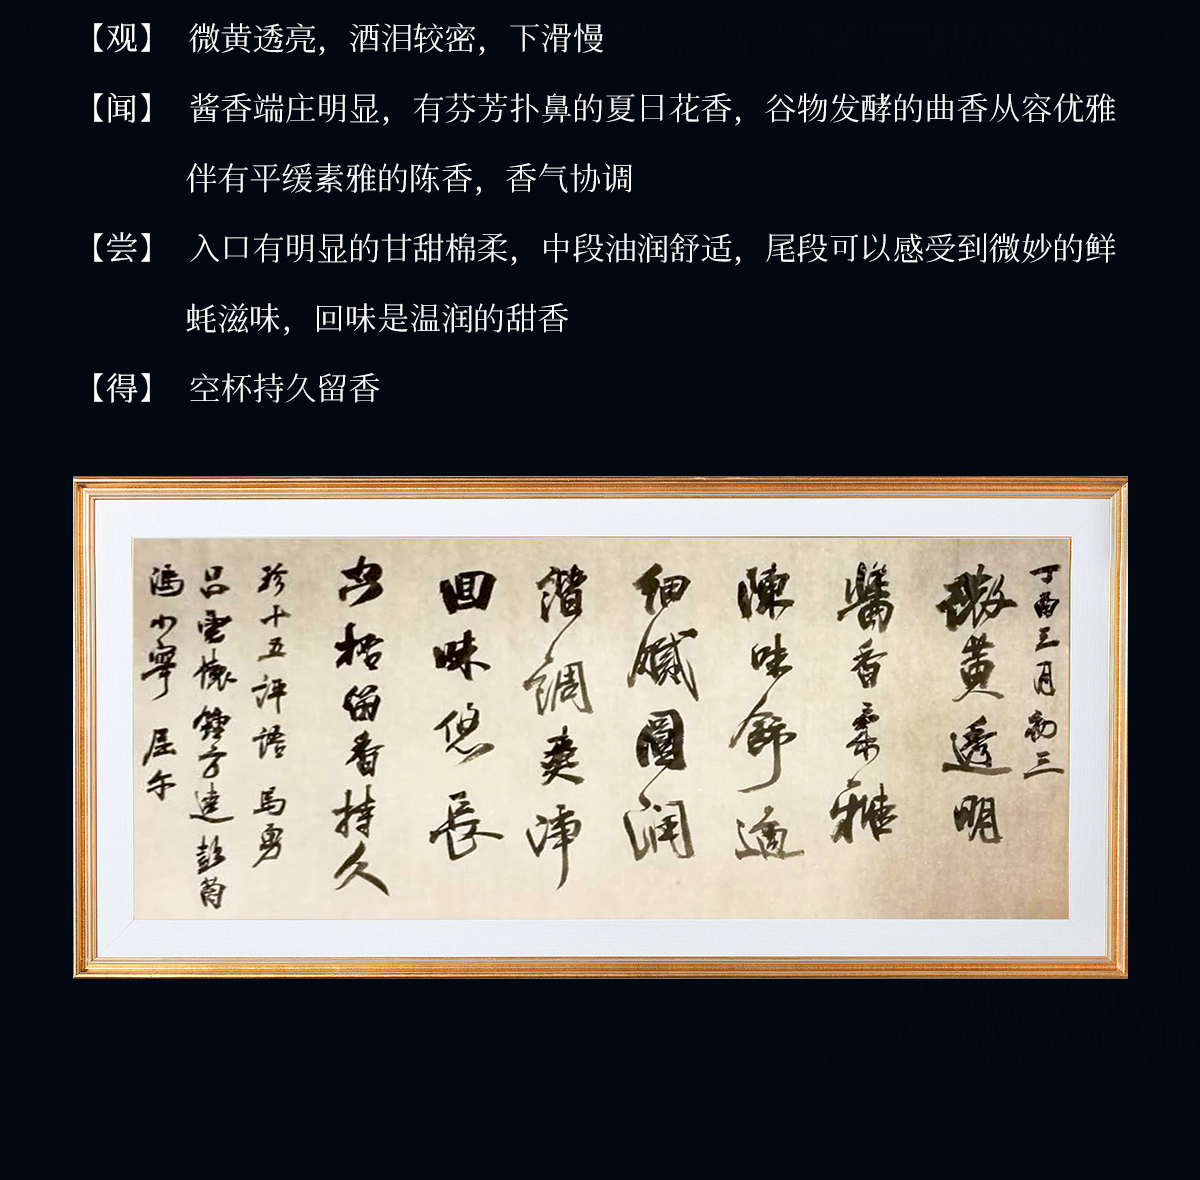 【观】 微黄透亮，酒泪较密，下滑慢
【闻】 酱香端庄明显，有芬芳扑鼻的夏日花香，谷物发酵的曲香从容优雅
伴有平缓素雅的陈香，香气协调
【尝】 入口有明显的甘甜棉柔，中段油润舒适，尾段可以感受到微妙的鲜
蚝滋味，回味是温润的甜香
【得】 空杯持久留香
丁酉三月初三
微黄透明
醬香素雅
陳味舒適
细腻圓润
諧調爽净
回味悠長
空杯留香持久
珍十五评语 马勇
吕雲懐 鍾方達 彭茵
馮小寧 屈午